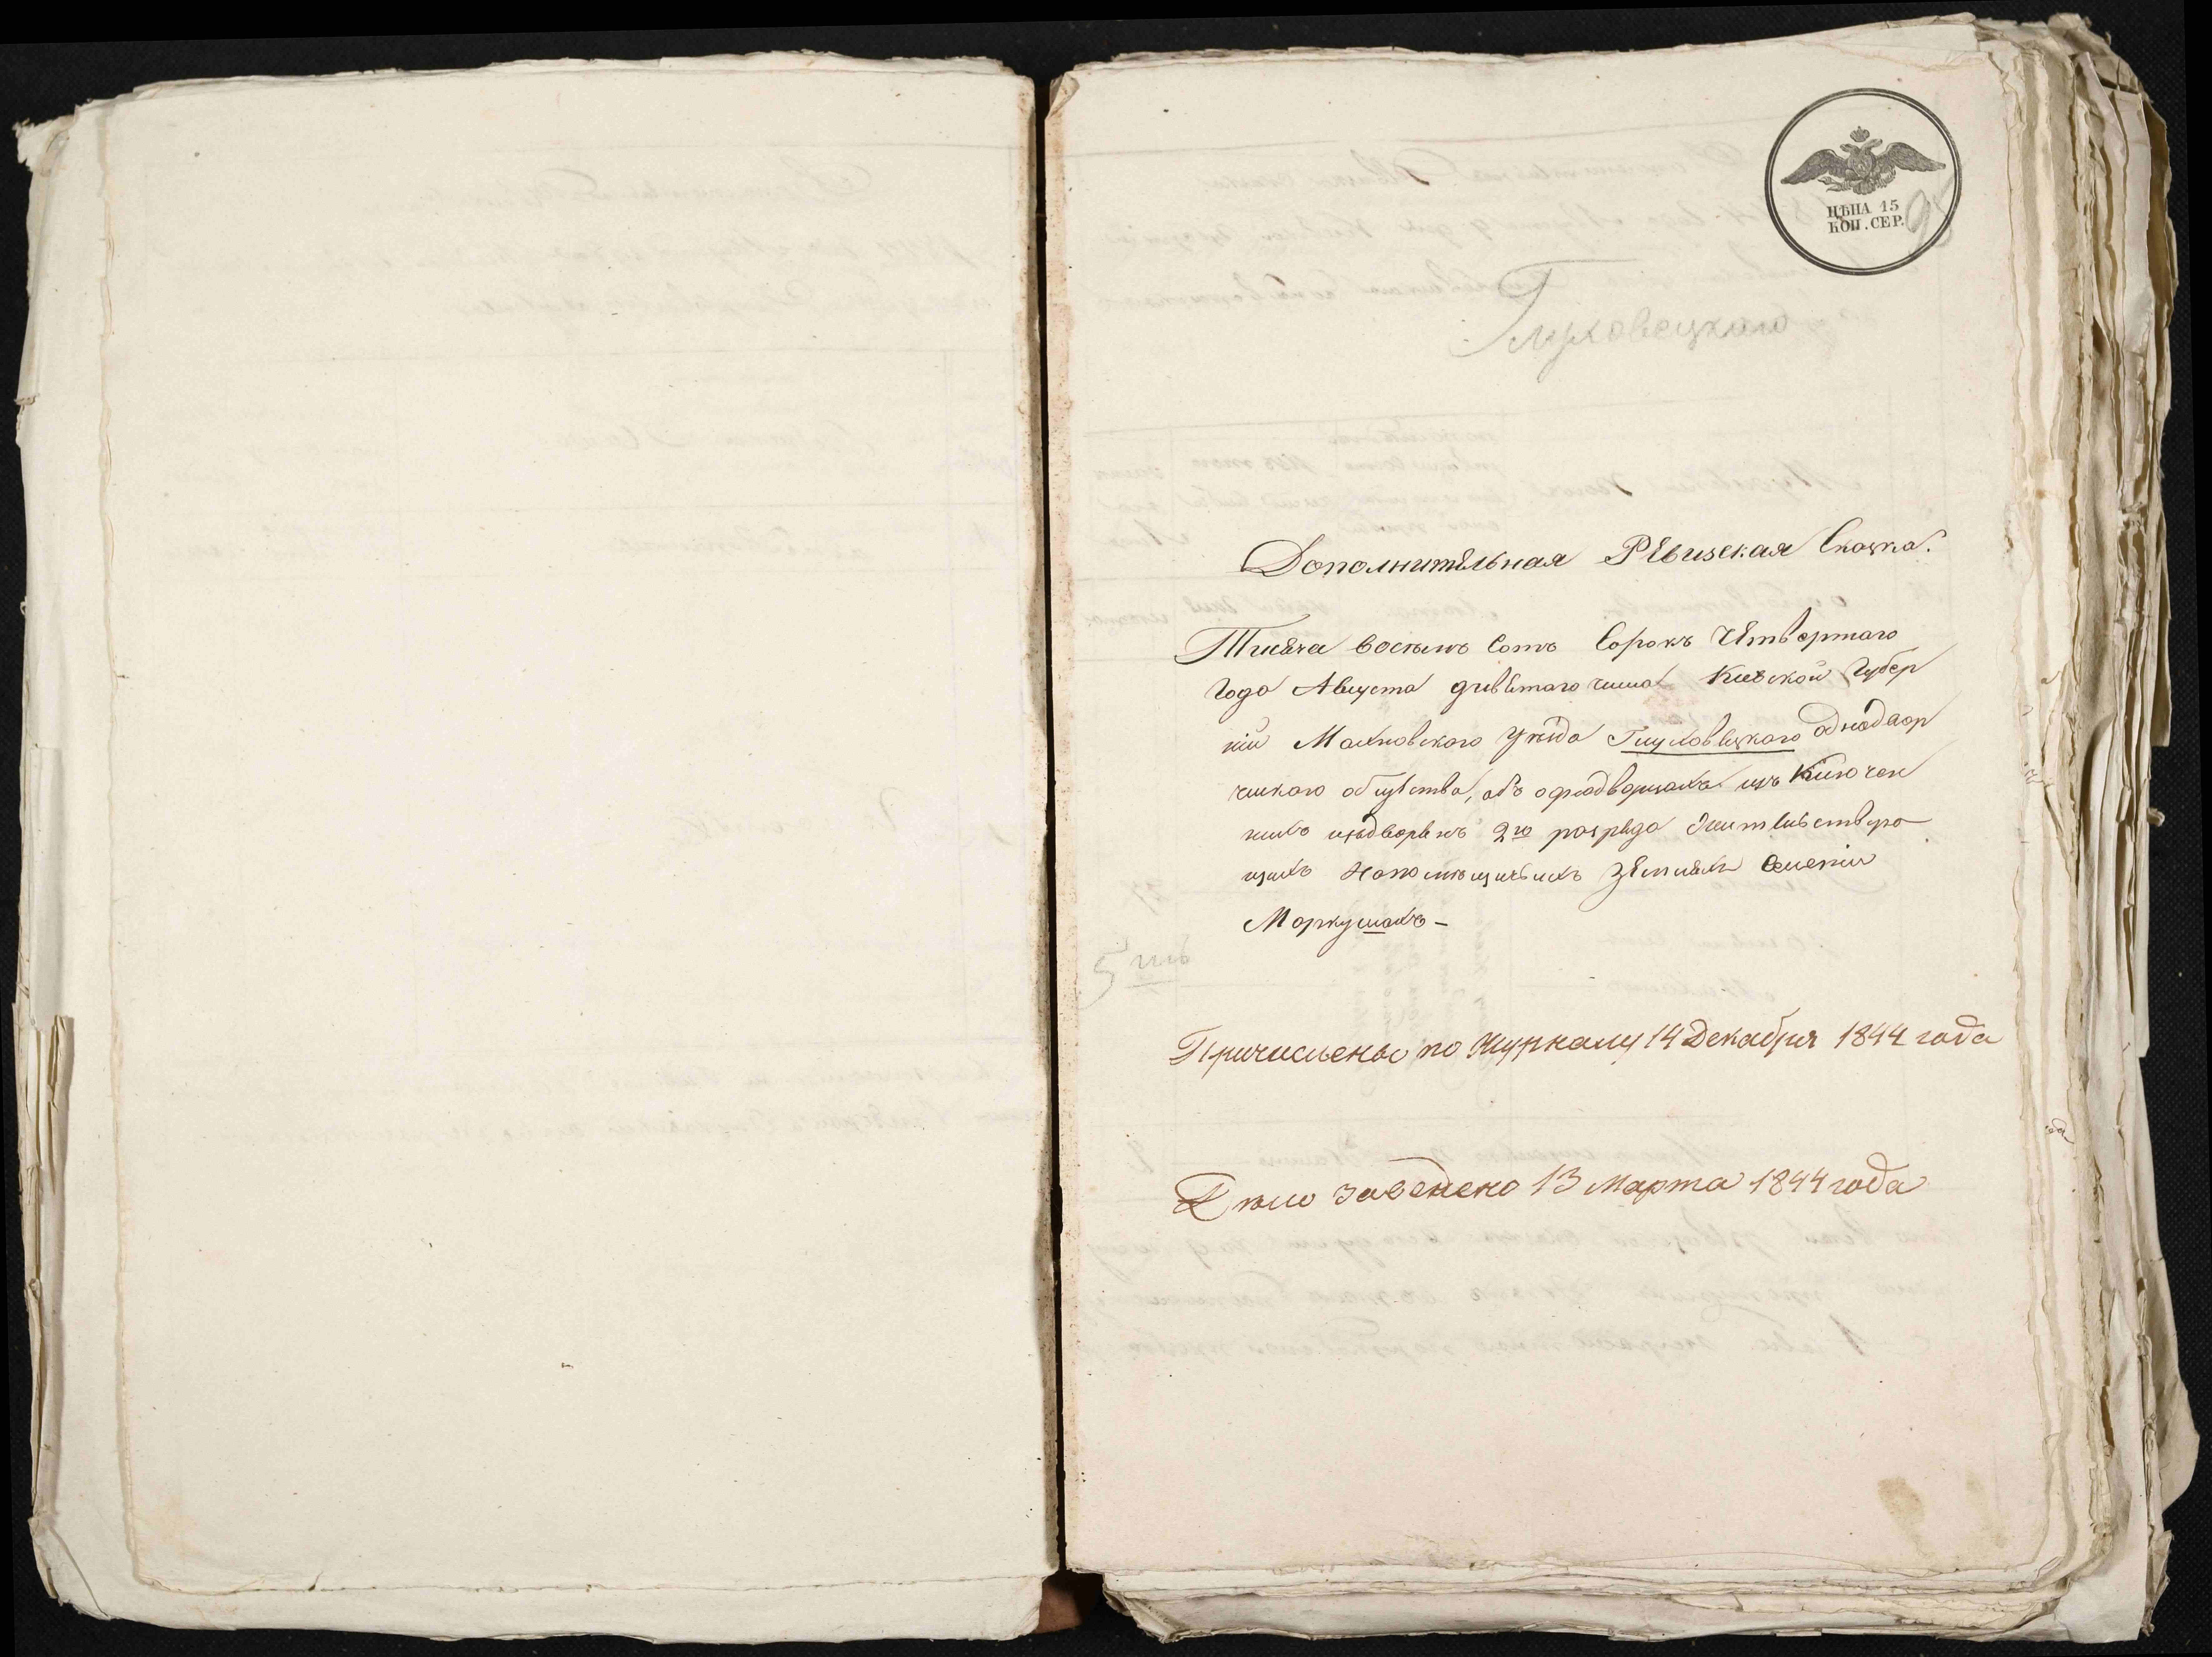 ЦѢНА 15
КОП. СЕР.
95
Глуховецкаго
Дополнительная Ревизская Сказка.
Тисяча восемь сотъ Сорокъ Четвертаго
года Августа девятаго числа Киевской Губер
ніи Махновскаго уѣзда Глуховецкаго однодвор
ческаго общества, объ однодворцахъ изъ Ключен
ныхъ издворянъ 2го разряда жительствую
щихъ На помѣщичьихъ Земляхъ Селеніи
Маркушахъ —
5
Причислены по Журналу 14 Декабря 1844 года
Дѣло заведено 13 Марта 1844 года